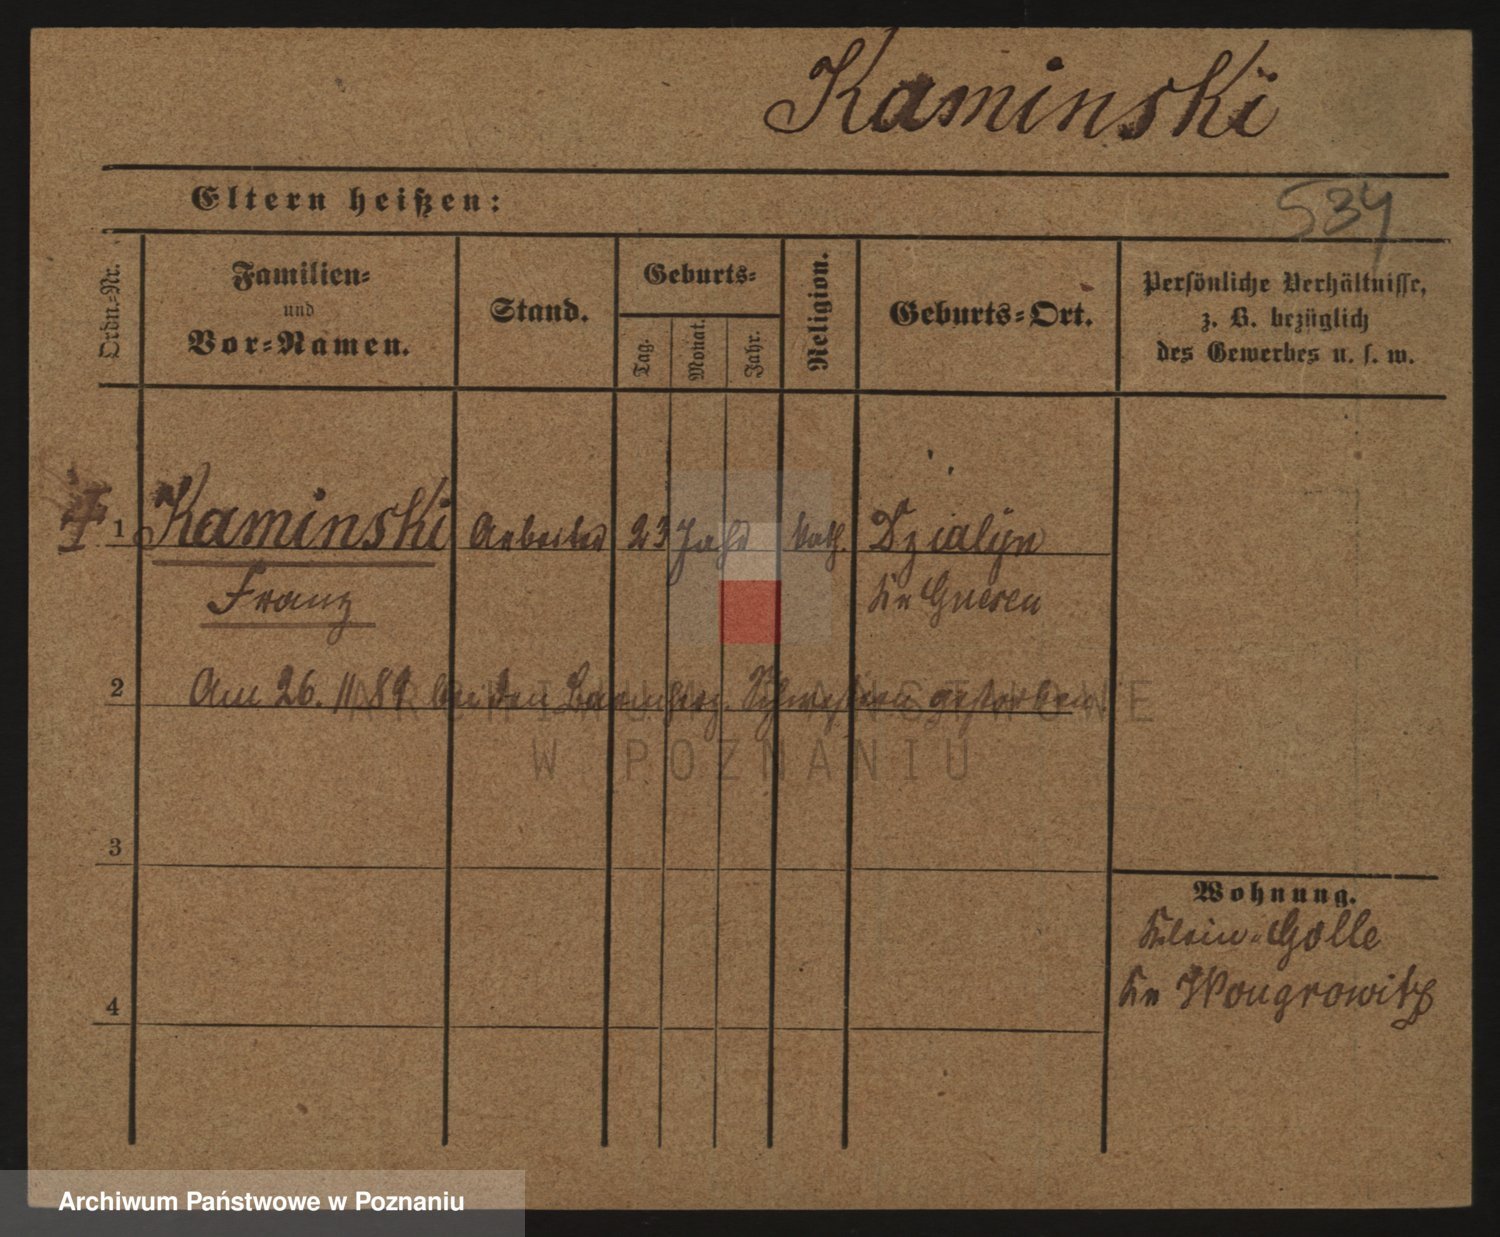 Kaminski
534
Eltern heißen:
Ordn.=Nr.
Familien=
und
Vor=Namen.
Stand.
Geburts=
Tag.
Monat.
Jahr.
Religion.
Geburts=Ort.
Persönliche Verhältnisse,
z. B. bezüglich
des Gewerbes u. s. w.
1 Kaminski Arbeiter 23 Jahr kath. Dzialyn
Franz Kr Gnesen
2 Am 26. 11 89 bei den Barmherz. Schwestern gestorben
ARCHIWUM PAŃSTWOWE
W POZNANIU
3
Wohnung.
Klein-Golle
Kr Wongrowitz
4
Archiwum Państwowe w Poznaniu